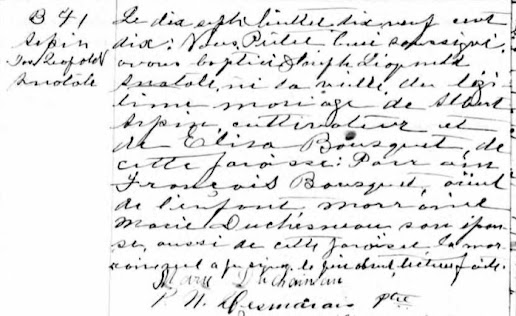 B 41
Arpin
Jos Léopold
Anatole
Le dix sept juillet dix neuf cent
dix: Nous Prêtre Curé soussigné,
avons baptisé Joseph Léopold
Anatole, né la veille, du légi-
time mariage de Albert
Arpin, cultivateur et
de Elisa Bousquet, de
cette paroisse: Parrain
François Bousquet, aïeul
de l'enfant, marraine
Marie Duchesneau, son épou-
se, aussi de cette paroisse. La mar-
raine seul a signé. le père absent. lecture faite.
Marie Duchainau
P. N. Desmarais Ptre